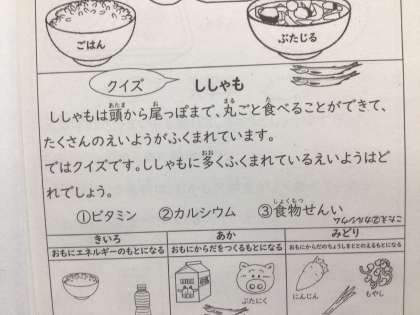 ごはん
ぶたじる
クイズ
ししゃも
ししゃもは頭から尾っぽまで、丸ごと食べることができて、
たくさんのえいようがふくまれています。
ではクイズです。ししゃもに多くふくまれているえいようはど
れでしょう。
①ビタミン ②カルシウム ③食物せんい
こたえ②カルシウム
きいろ あか みどり
おもにエネルギーのもとになる おもにからだをつくるもとになる おもにからだのちょうしをととのえるもとになる
ぶたにく にんじん もやし